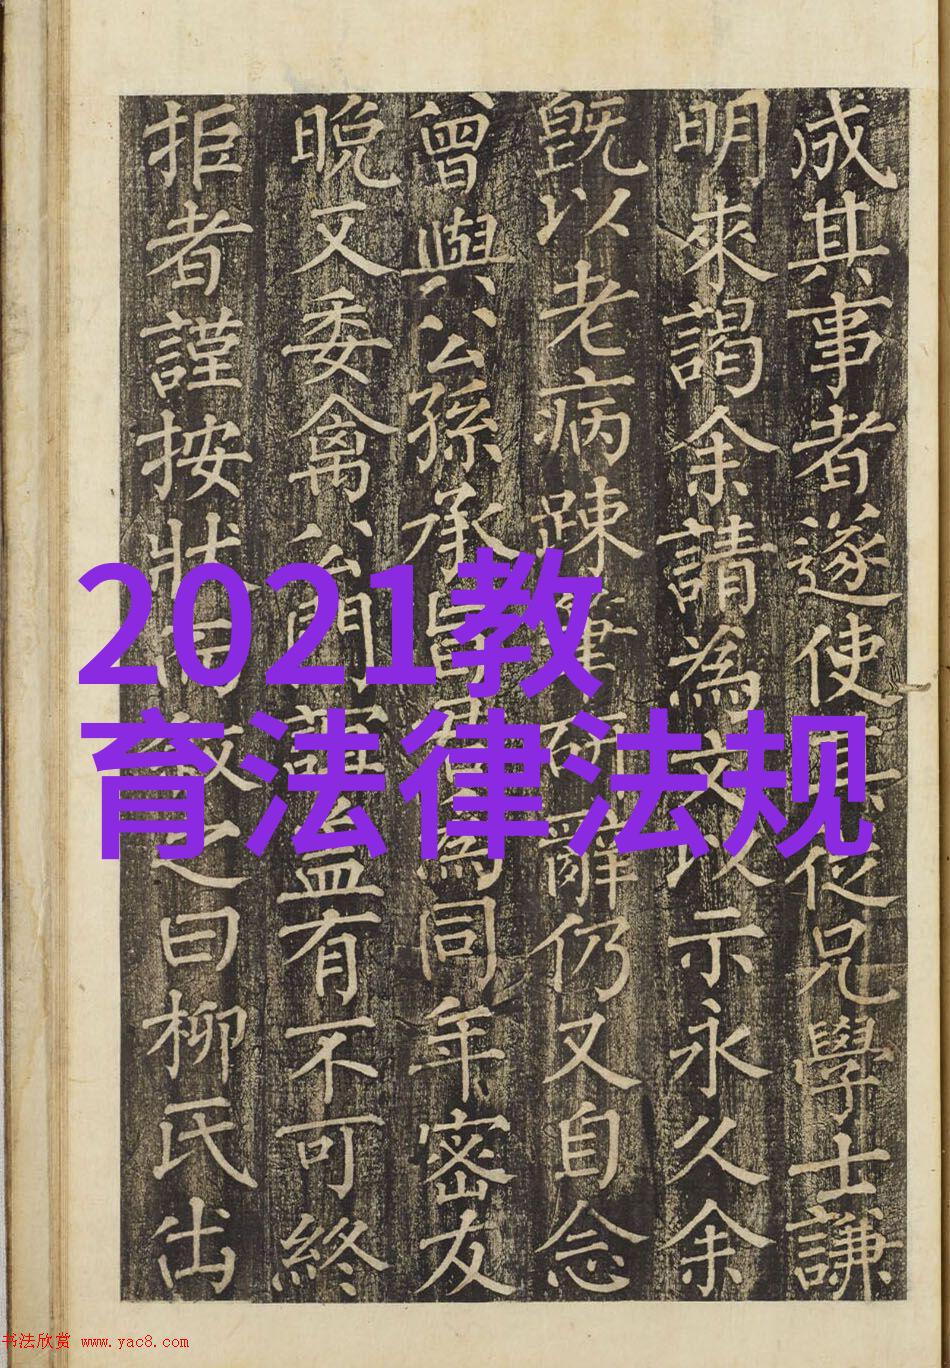 成其事者遂使其從兄學士謙
明來謁余請為文以示永久余
既以老病踈研辭仍又自念
曾與公孫承旨為同年密友
晚又委禽公門誼益有不可終
拒者謹按狀因敘之曰柳氏出
2021教
育法律法规
书法欣赏 www.yac8.com